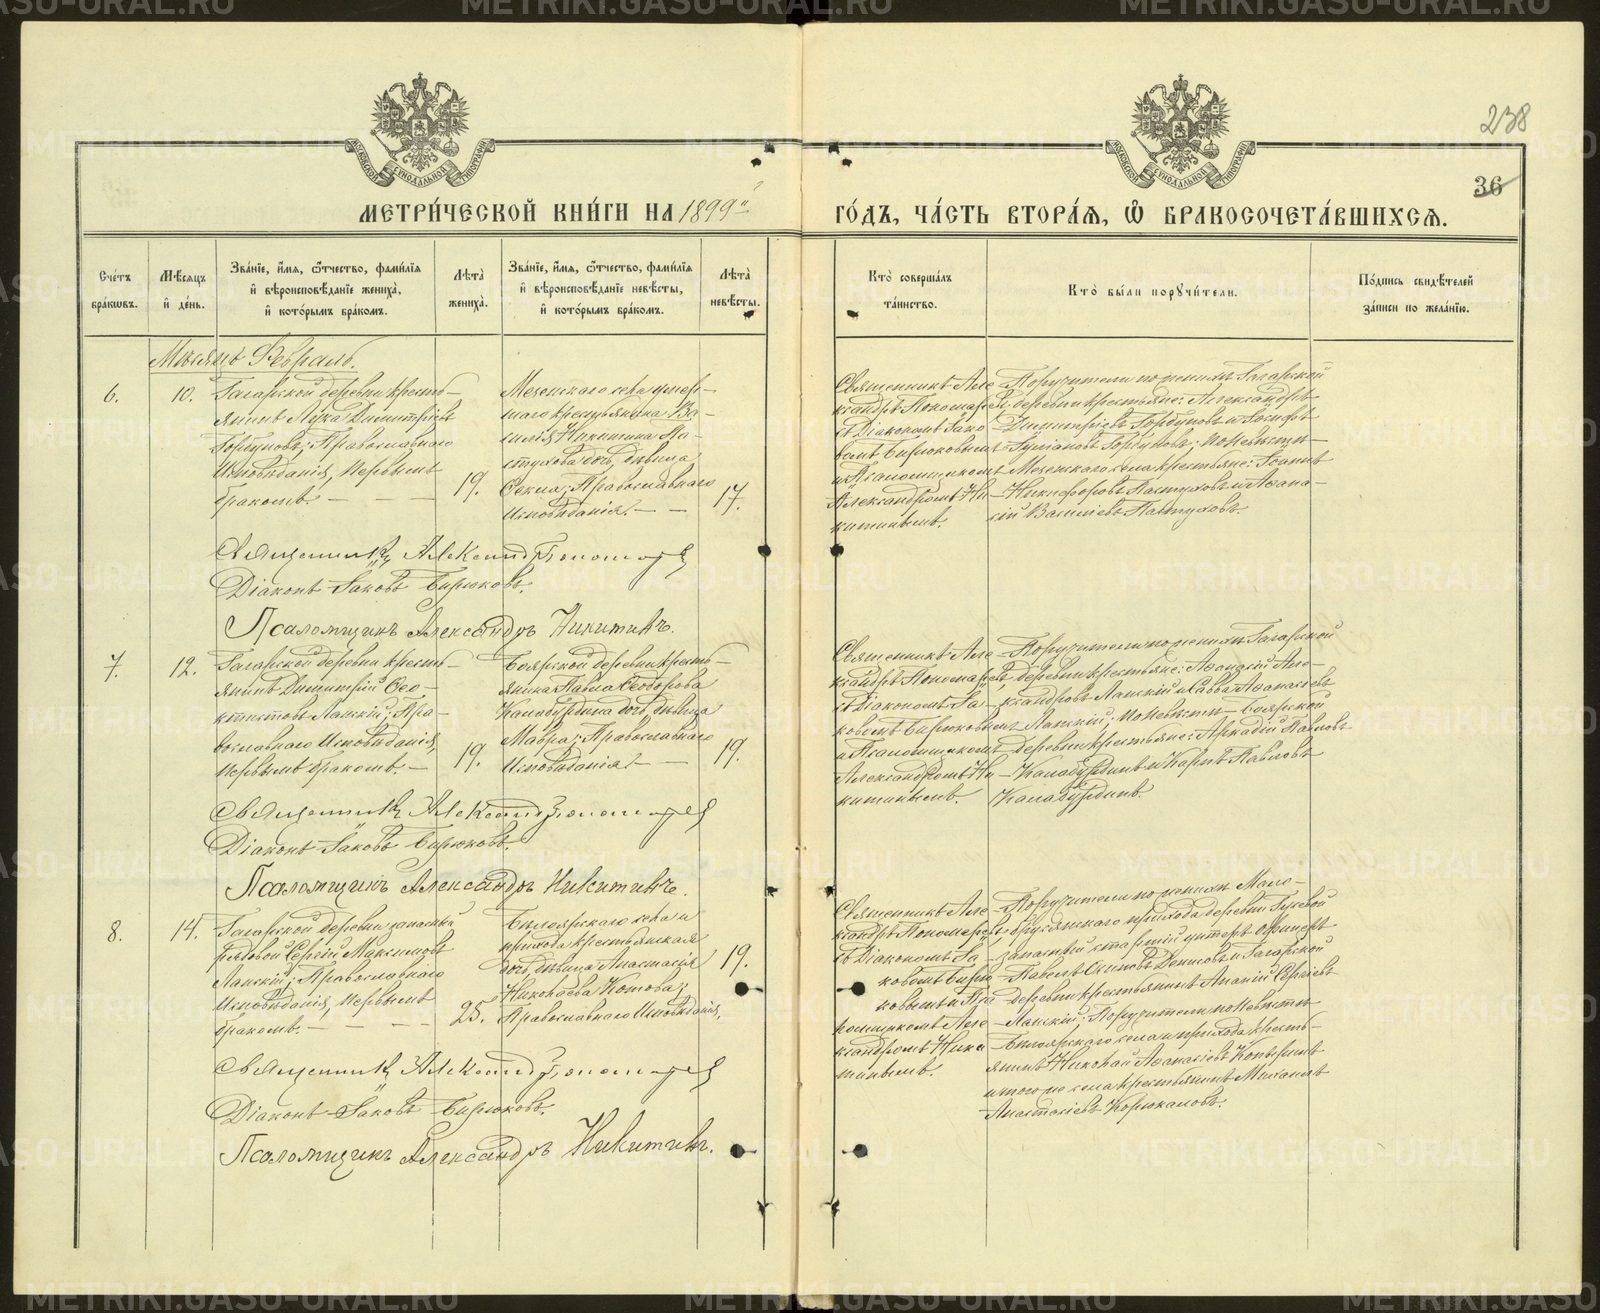 238
36
МОСКОВСКОЙ СУНОДАЛЬНОЙ ТИПОГРАФІИ
МОСКОВСКОЙ СУНОДАЛЬНОЙ ТИПОГРАФІИ
МЕТРИ́ЧЕСКОЙ КНИ́ГИ НА 1899й
ГО́ДЪ, ЧА́СТЬ ВТОРА́Ѧ, Ѽ БРАКОСОЧЕТА́ВШИХСѦ.
Сче́тъ бра́кѡвъ.
Мѣ́сяцъ и҆ де́нь.
Зва́нїе, и҆́мѧ, ѻ҆́тчество, фами́лїѧ и҆ вѣроисповѣ́данїе жениха̀, и҆ кото́рымъ бра́комъ.
Лѣта̀ жениха̀.
Зва́нїе, и҆́мѧ, ѻ҆́тчество, фами́лїѧ и҆ вѣроисповѣ́данїе невѣ́сты, и҆ кото́рымъ бра́комъ.
Лѣта̀ невѣ́сты.
Кто̀ соверша́лъ та́инство.
Кто̀ бы́ли порꙋчи́тели.
По́дпись свидѣ́телей за́писи по жела́нїю.
Мѣсяцъ Февраль.
6.
10.
Гагарской деревни кресть-
янинъ Лука Димитріевъ
Горбуновъ; Православнаго
Исповѣданія, первымъ
бракомъ.
19.
Мезенскаго села умер-
шаго крестьянина Ва-
силія Никитина Па-
стухова дочь дѣвица
Ѳекла; Православнаго
Исповѣданія.
17.
Священникъ Але-
ксандръ Пономаревъ
съ Діакономъ Іако-
вомъ Бирюковымъ
и Псаломщикомъ
Александромъ Ни-
китинымъ.
Поручители по женихѣ Гагарской
деревни крестьяне: Александръ
Димитріевъ Горбуновъ и Іосифъ
Горбуновъ; по невѣстѣ-
Мезенскаго села крестьяне: Іоаннъ
Никифоровъ Пастуховъ и Аѳана-
сій Васильевъ Пастуховъ.
Священникъ Александр Пономарев
Діаконъ Іаковъ Бирюковъ.
Псаломщикъ Александръ Никитинъ.
7.
12.
Гагарской деревни кресть-
янинъ Димитрій Ѳео-
ктистовъ Лапскій; Пра-
вославнаго Исповѣданія,
первымъ бракомъ.
19.
Боярской деревни кресть-
янина Павла Ѳеодорова
Калабурдина дочь дѣвица
Мавра; Православнаго
Исповѣданія.
19.
Священникъ Але-
ксандръ Пономаревъ
съ Діакономъ Іа-
ковомъ Бирюковымъ
и Псаломщикомъ
Александромъ Ни-
китинымъ.
Поручители по женихѣ Гагарской
деревни крестьяне: Але-
ксандровъ Лапскій и Савва Аѳанасіевъ
Лапскій; по невѣстѣ - Боярской
деревни крестьяне: Аркадій Павловъ
Калабурдинъ и Карпъ Павловъ
Калабурдинъ.
Священникъ Александр Пономарев
Діаконъ Іаковъ Бирюковъ.
Псаломщикъ Александръ Никитинъ.
8.
14.
Гагарской деревни запасный
рядовой Сергій Максимовъ
Лапскій; Православнаго
Исповѣданія, первымъ
бракомъ.
25.
Бѣлоярскаго села и
прихода крестьянская
дочь дѣвица Анастасія
Николаева Котова;
Православнаго Исповѣданія.
19.
Священникъ Але-
ксандръ Пономаревъ
съ Діакономъ Іа-
ковомъ Бирю-
ковымъ и Пса-
ломщикомъ Але-
ксандромъ Ники-
тинымъ.
Поручители по женихѣ Мало-
брусянскаго прихода деревни Гусевой
запасный старшій унтеръ офицеръ
Павелъ Осиповъ Денисовъ и Гагарской
деревни крестьянинъ Ананій Сергіевъ
Лапскій; Поручители по невѣстѣ
Бѣлоярскаго села и прихода кресть-
янинъ Николай Аѳанасіевъ
и того же села крестьянинъ Михаилъ
Анастасіевъ
Священникъ Александр Пономарев
Діаконъ Іаковъ Бирюковъ.
Псаломщикъ Александръ Никитинъ.
METRIKI.GASO-URAL.RU